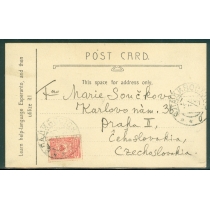 POST CARD.
This space for address only.
Learn help-language Esperanto, and then
utilize it!
Marie Součková
Karlovo nám. 3
Praha II.
Ĉeĥoslovakia,
Czechoslovakia.